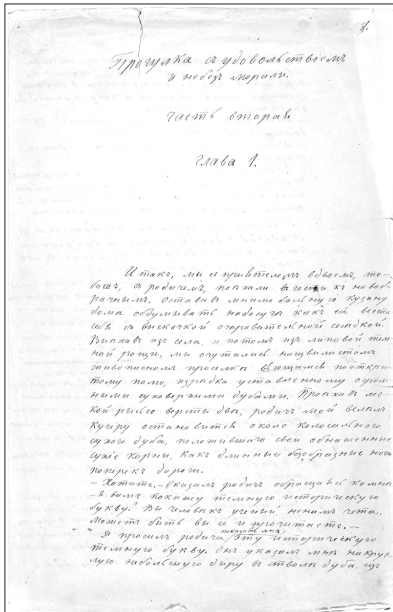 Прогулка съ удовольствіемъ
и небезъ морали.
часть вторая
глава 1.
И такъ, мы съ пріятелемъ вдвоемъ, то-
бишь, съ родичемъ, поѣхали въ гости къ новоб
рачнымъ. Оставивъ мнимо больную кузину
дома обдумывать на досугѣ какъ ей вести
себя съ выскочкой очаровательной сосѣдкой.
Выѣхавъ изъ села, и потомъ изъ липовой тем
ной рощи, мы очутились на
живописномъ проселкѣ вьющимся по откры-
тому полю, изрѣдка уставленному огром-
ными суховерхими дубами. Проѣхавъ лег-
кой рысью версты двѣ, родичъ мой велѣлъ
кучеру остановится около колосального
сухого дуба, положившаго свои обнаженные
сухіе корни, какъ длинные безобразные ноги
поперекъ дороги.
— Хотите, — сказалъ родичъ обращаясь ко мнѣ
— Я вамъ покажу темную историческую
букву? Вы человѣкъ ученый, не намъ чета.
Можетъ быть вы ее и прочитаете. —
Я просилъ родича показать мнѣ эту историческую
темную букву. Онъ указалъ мнѣ на круг
лую небольшую дыру въ стволѣ дуба, гдѣ